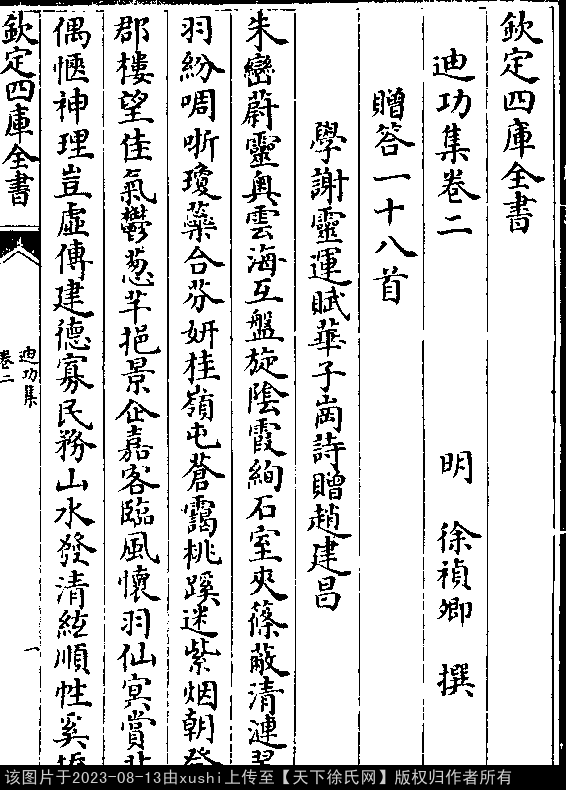 欽定四庫全書
迪功集卷二
明 徐禎卿 撰
贈答一十八首
學謝靈運賦華子崗詩贈趙建昌
朱巒蔚靈奥雲海互盤旋陰霞絢石室夾篠蔽清漣翠
羽紛啁哳瓊蘂合芬妍桂嶺屯蒼靄桃蹊迷紫烟朝登
郡樓望佳氣鬱葱芊挹景企嘉客臨風懷羽仙冥賞非
偶愜神理豈虚傳建德寡民務山水發清絃順性奚
欽定四庫全書
迪功集
卷二
一
该图片于2023-08-13由xushi上传至【天下徐氏网】版权归作者所有